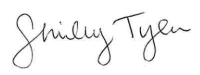 Shirley Tyler